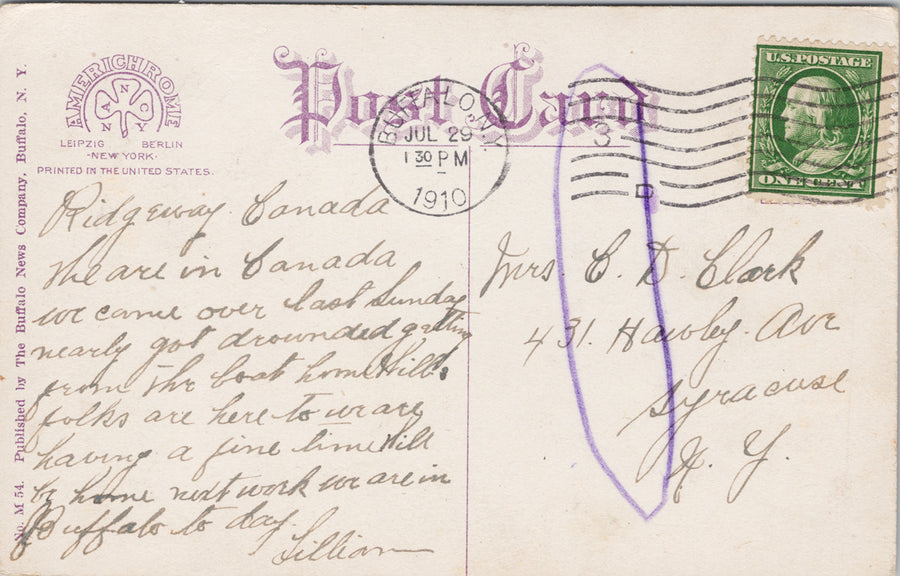 AMERICHROME
ANCNY
LEIPZIG BERLIN
·NEW YORK·
PRINTED IN THE UNITED STATES.
No. M 54. Published by The Buffalo News Company, Buffalo, N. Y.
Post Card
BUFFALO, N.Y.
JUL 29
1 30 PM
1910
3
D
U.S. POSTAGE
ONE CENT
Ridgeway Canada
We are in Canada
we came over last Sunday
nearly got drownded getting
from the boat home Will's
folks are here to we are
having a fine time Will
be home next week we are in
Buffalo to day.
Lillian
Mrs C. D. Clark
431. Hawley. Ave
Syracuse
N. Y.